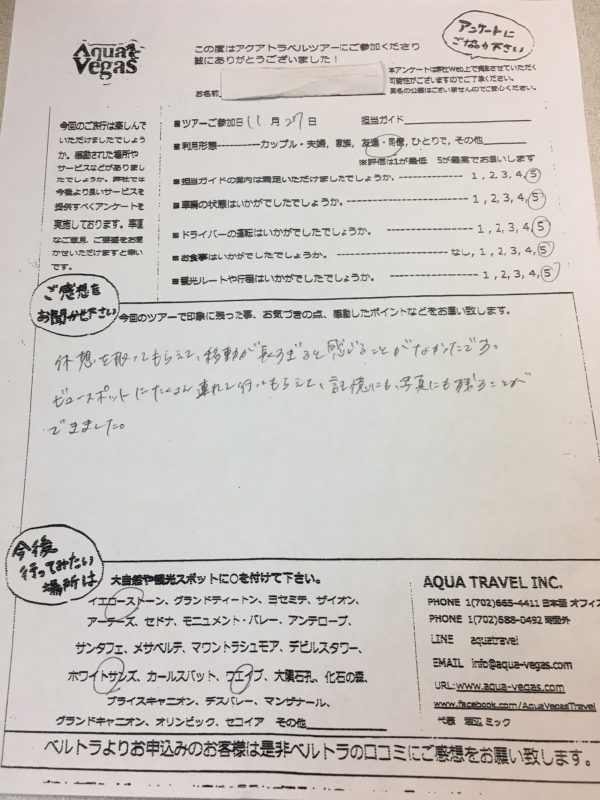 Aqua Vegas
この度はアクアトラベルツアーにご参加くださり
誠にありがとうございました！
アンケートに
ご協力下さい
お名前
本アンケートは弊社Web上で発表させていただく
可能性がございますのでご了承ください。
実名の公開はございませんのでご安心ください。
今回のご旅行は楽しんで
いただけましたでしょう
か。感動された場所や
サービスなどがありまし
たでしょうか。弊社では
今後より良いサービスを
提供すべくアンケートを
実施しております。率直
なご意見、ご要望をお聞
かせいただけますと幸い
です。
■ツアーご参加日 11 月 27 日 担当ガイド
■利用形態------------カップル・夫婦, 家族, 友達・同僚, ひとりで, その他
※評価は1が最低 5が最高でお願いします
■担当ガイドの案内は満足いただけましたでしょうか。 ---------------- 1, 2, 3, 4, 5
■車輌の状態はいかがでしたでしょうか。 -------------------- 1, 2, 3, 4, 5
■ドライバーの運転はいかがでしたでしょうか。 ---------------- 1, 2, 3, 4, 5
■お食事はいかがでしたでしょうか。 ------------------ なし, 1, 2, 3, 4, 5
■観光ルートや行程はいかがでしたでしょうか。 ---------------- 1, 2, 3, 4, 5
ご感想を
お聞かせ下さい
今回のツアーで印象に残った事、お気づきの点、感動したポイントなどをお願い致します。
休憩を取ってもらえて、移動が長すぎると感じることがなかったです。
ビュースポットにたくさん連れて行ってもらえて、記憶にも、写真にも残すことが
できました。
今後
行ってみたい
場所は
大自然や観光スポットに○を付けて下さい。
イエローストーン、グランドティートン、ヨセミテ、ザイオン、
アーチーズ、セドナ、モニュメント・バレー、アンテロープ、
サンタフェ、メサベルデ、マウントラシュモア、デビルスタワー、
ホワイトサンズ、カールスバット、ウエイブ、大隕石孔、化石の森、
ブライスキャニオン、デスバレー、マンザナール、
グランドキャニオン、オリンピック、セコイア その他
AQUA TRAVEL INC.
PHONE 1(702)665-4411 日本語 オフィス
PHONE 1(702)588-0492 時間外
LINE aquatravel
EMAIL info@aqua-vegas.com
URL:www.aqua-vegas.com
www.facebook.com/AquaVegasTravel
代表 渡辺 ミック
ベルトラよりお申込みのお客様は是非ベルトラの口コミにご感想をお願い致します。